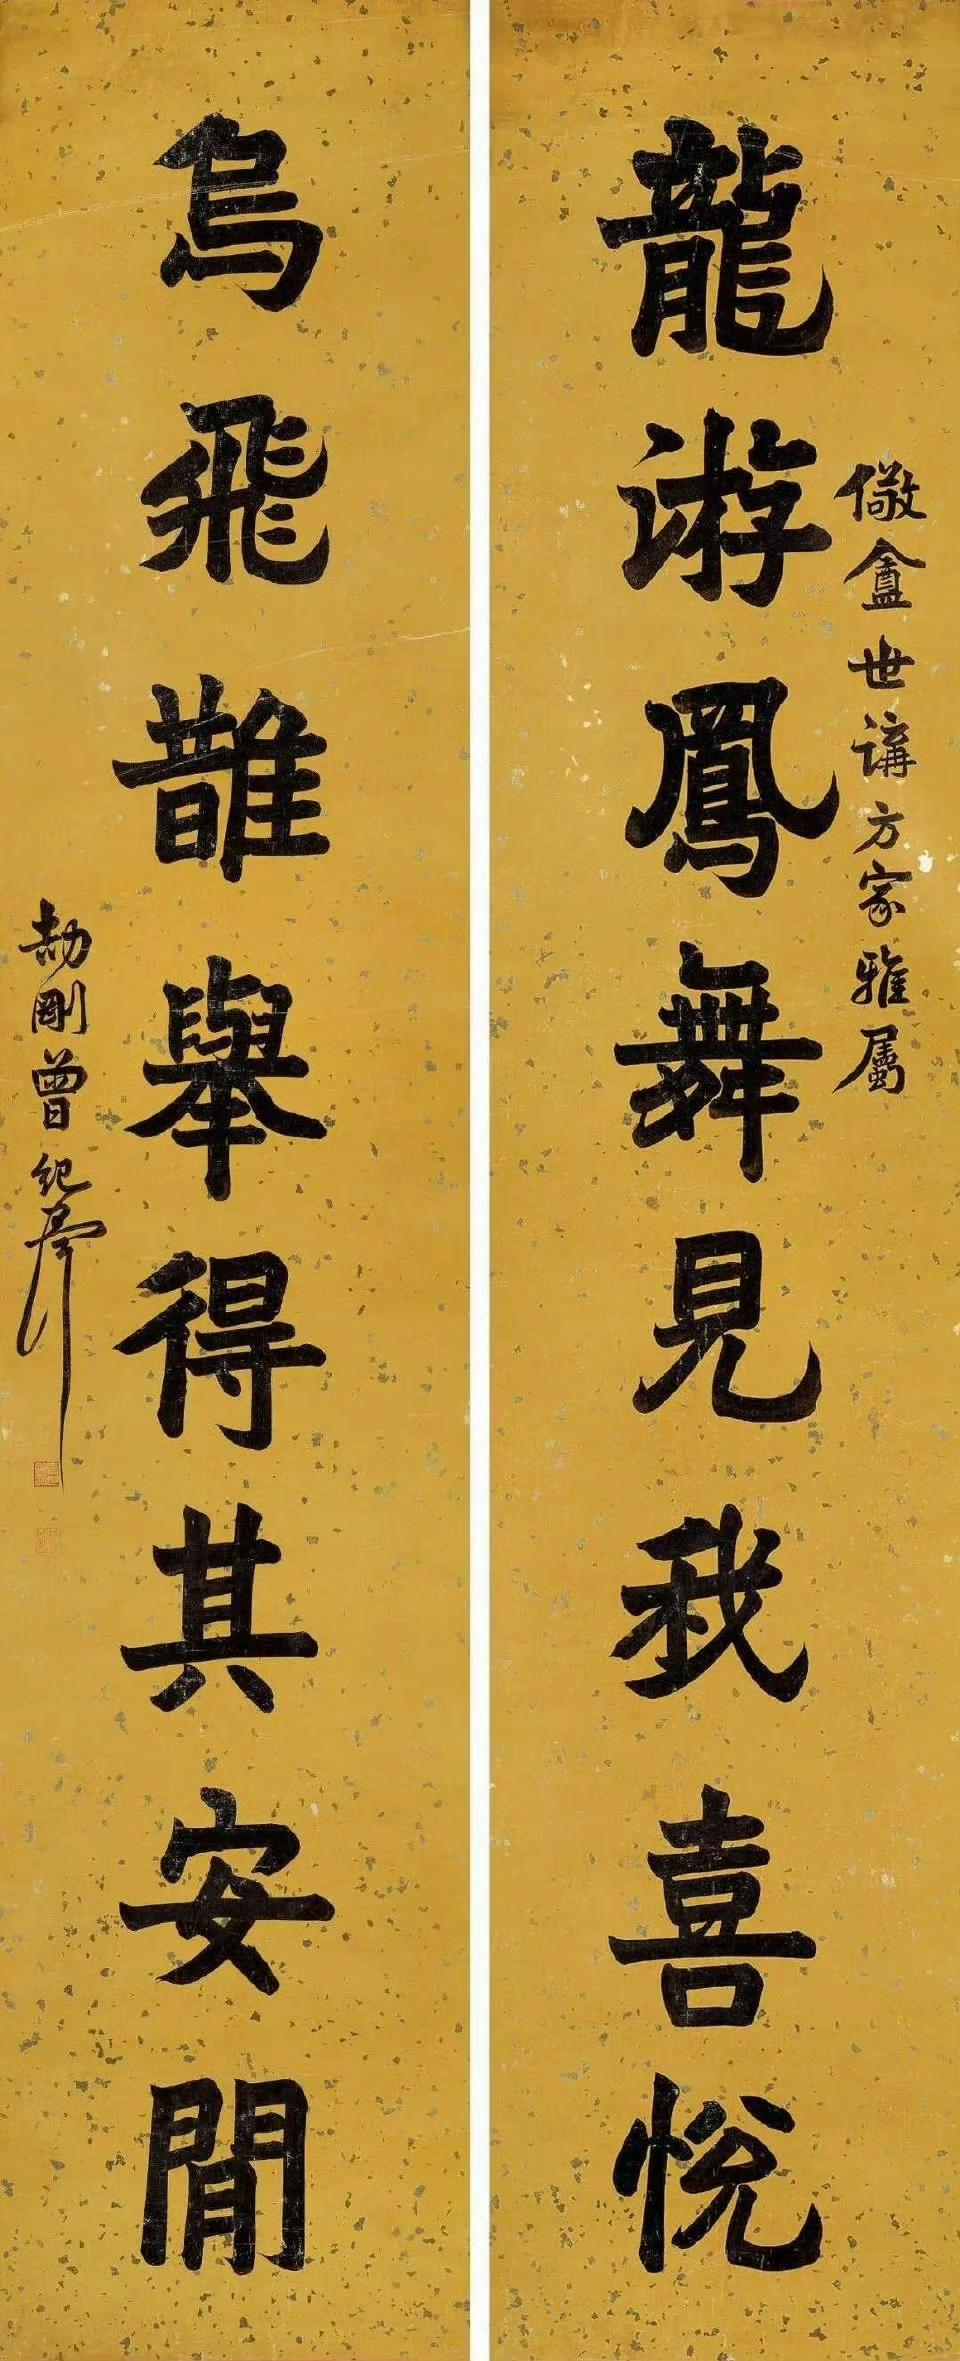 儆盦世講方家雅屬
龍游鳳舞見我喜悅
烏飛䧿舉得其安閒
劼剛曾紀澤